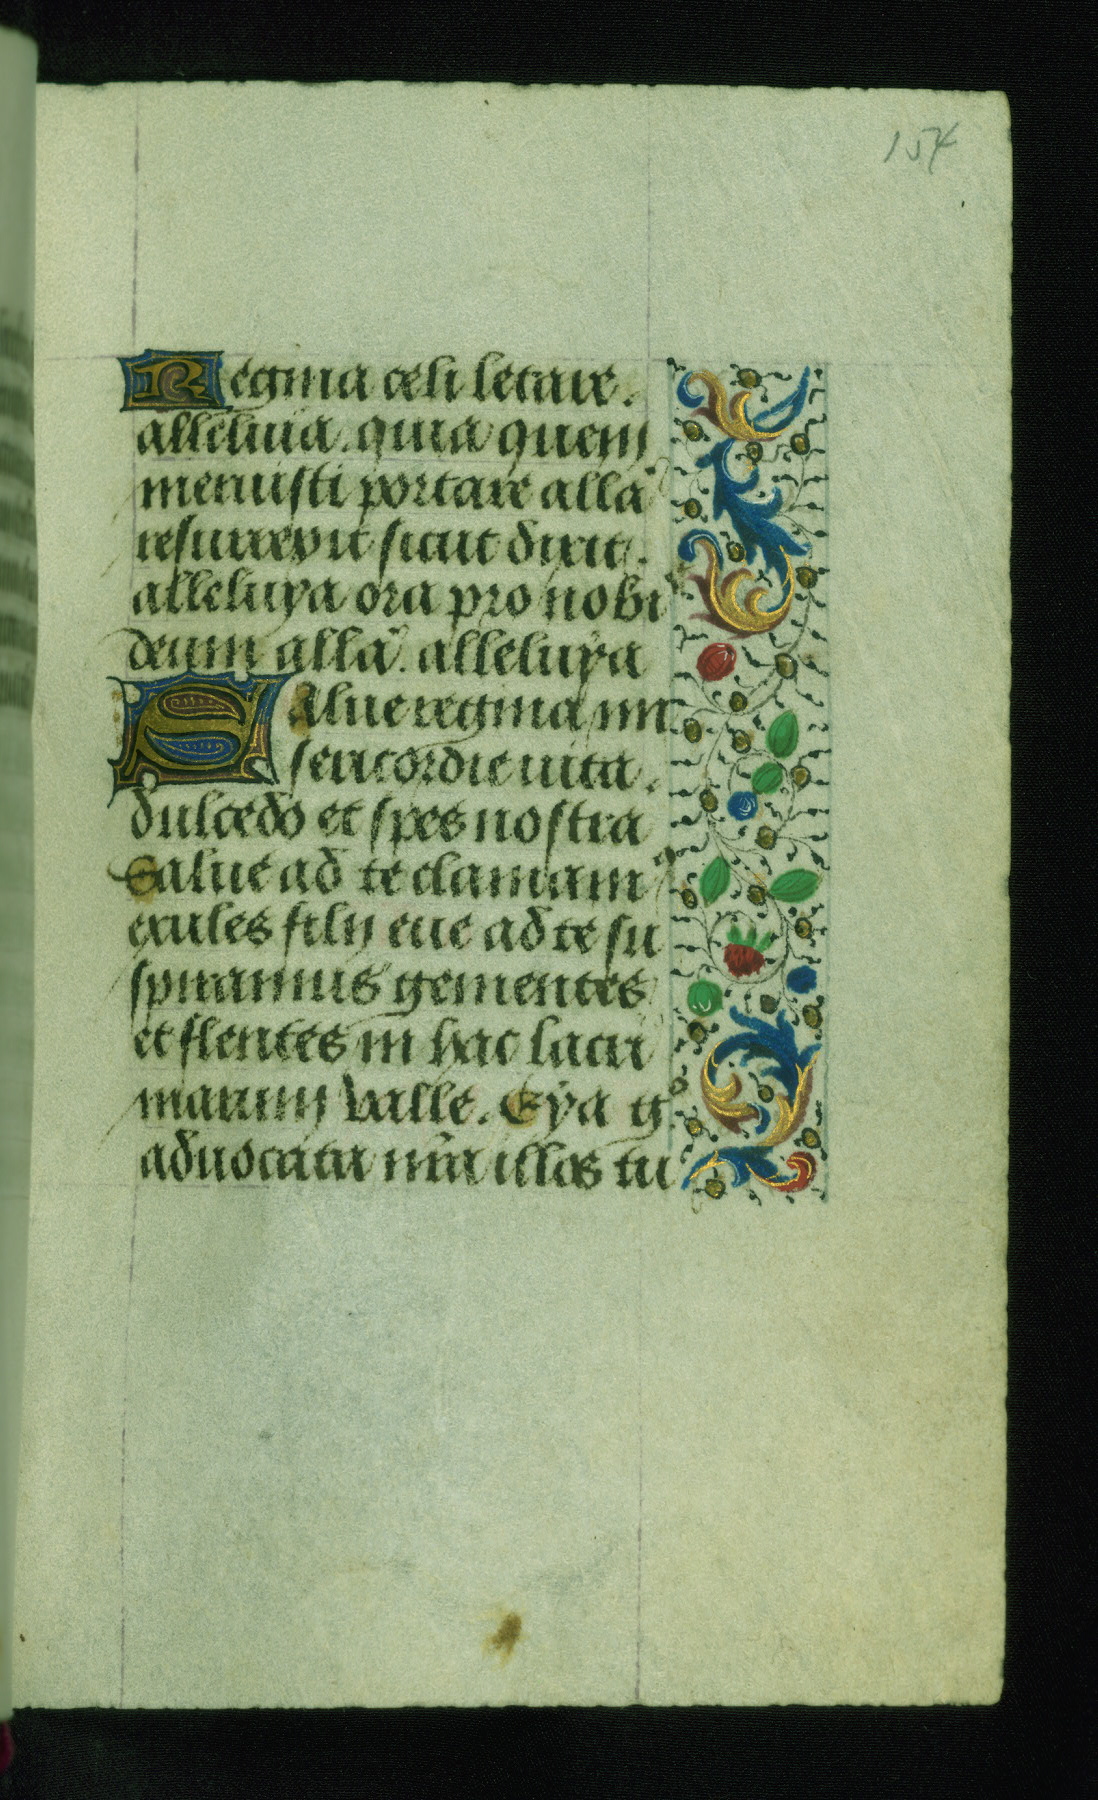 154
Regina celi letare.
alleluia. quia quem
meruisti portare alla
resurrexit sicut dixit.
alleluya ora pro nobi
deum alla. alleluya
Salue regina mi
sericordie uita.
dulcedo et spes nostra
Salue ad te clamam
exules filij eue ad te su
spiramus gementes
et flentes in hac lacri
marum valle. Eya g
aduocata nr̄a illos tu